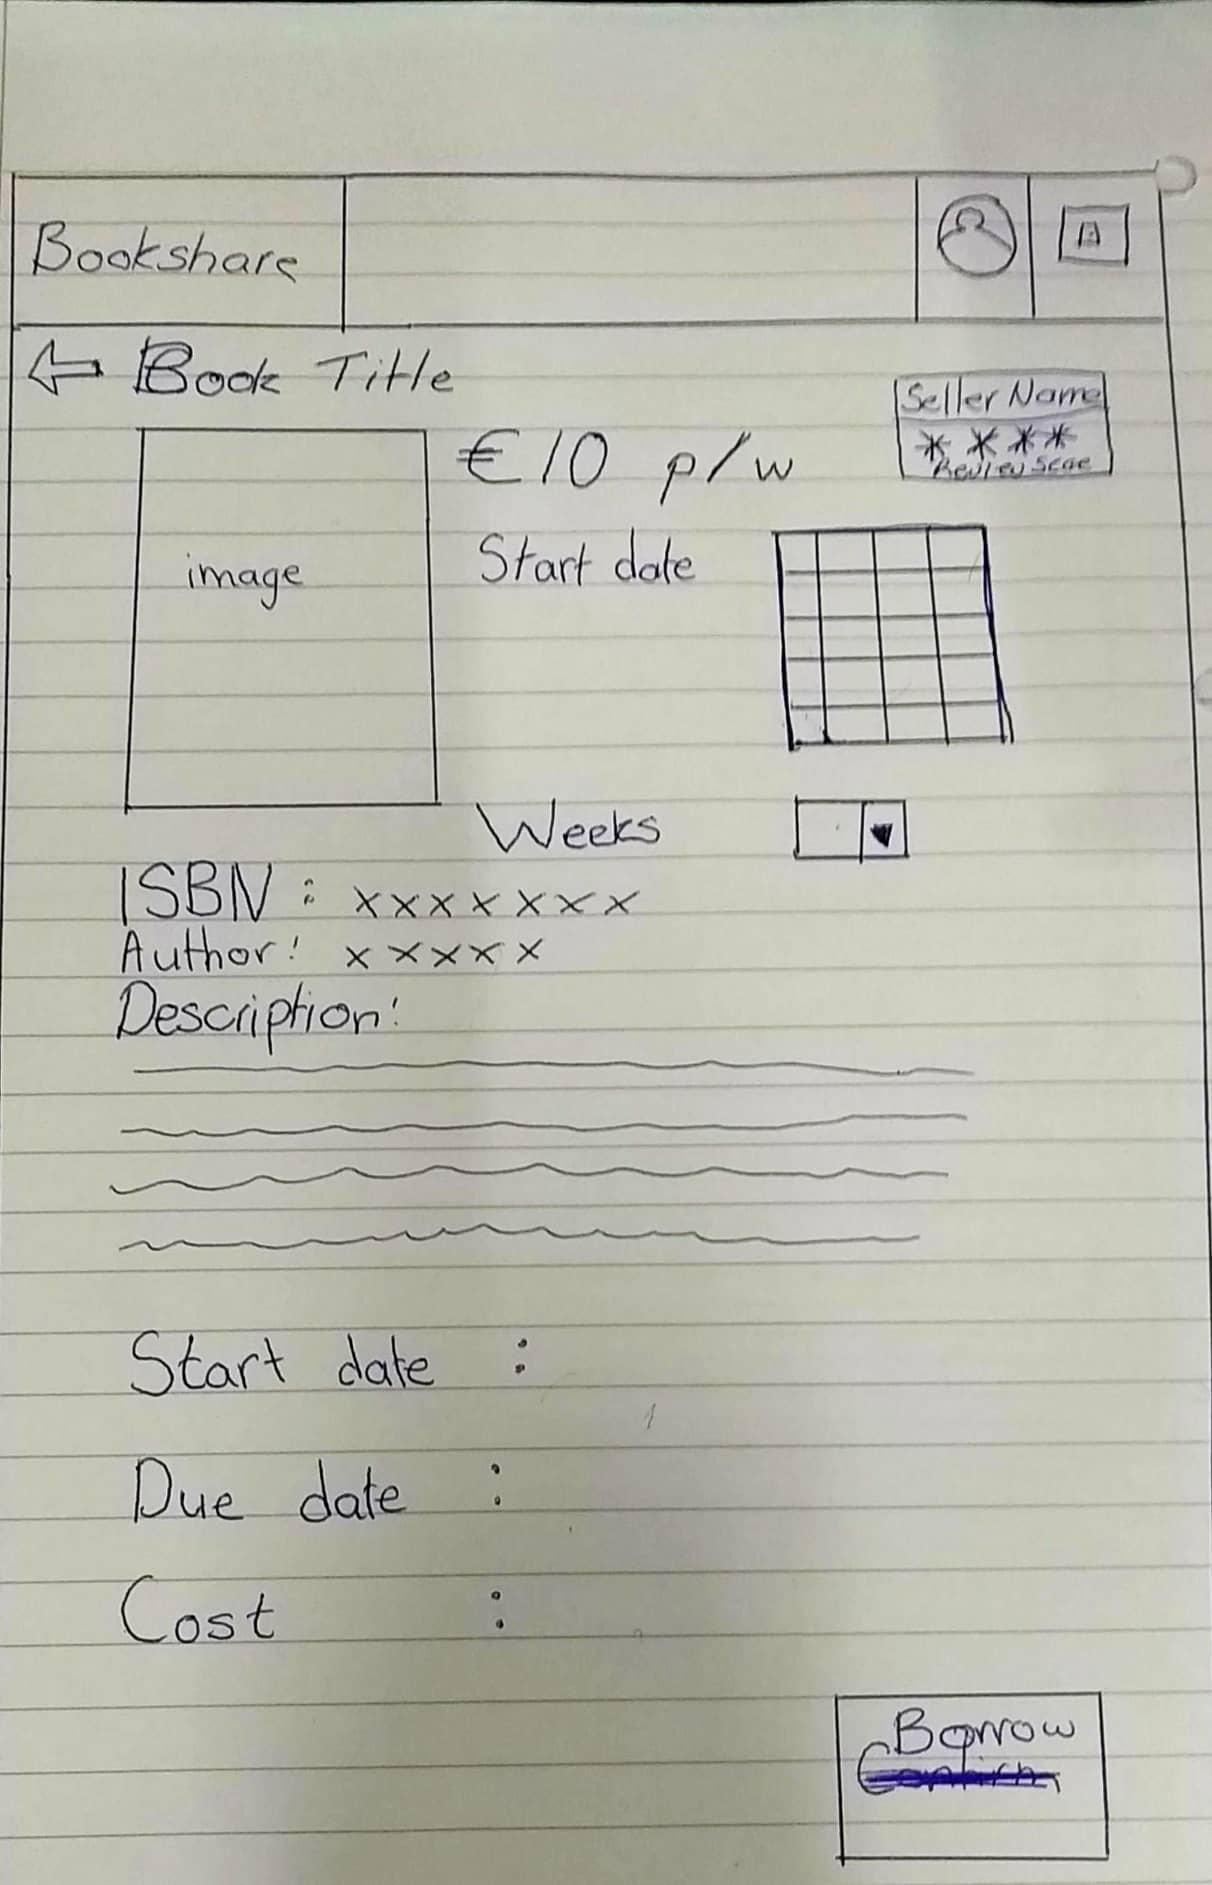 Bookshare
Book Title
Seller Name
****
Review Score
€10 p/w
image
Start date
Weeks
ISBN : xxxxxxx
Author: xxxxx
Description:
Start date :
Due date :
Cost :
Borrow
Confirm